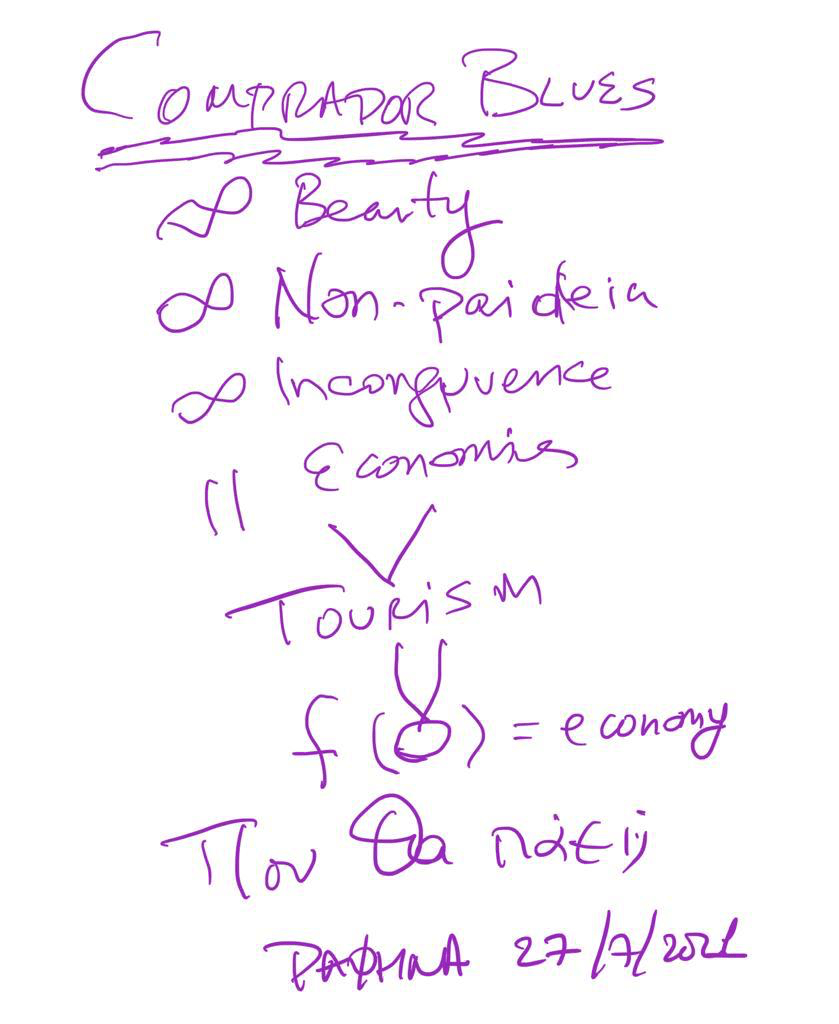 COMPRADOR BLUES
∞ Beauty
∞ Non-paideia
∞ Incongruence
|| Economies
TOURISM
f (0) = economy
Που θα πάει;
ΡΑΦΗΝΑ 27/7/2021